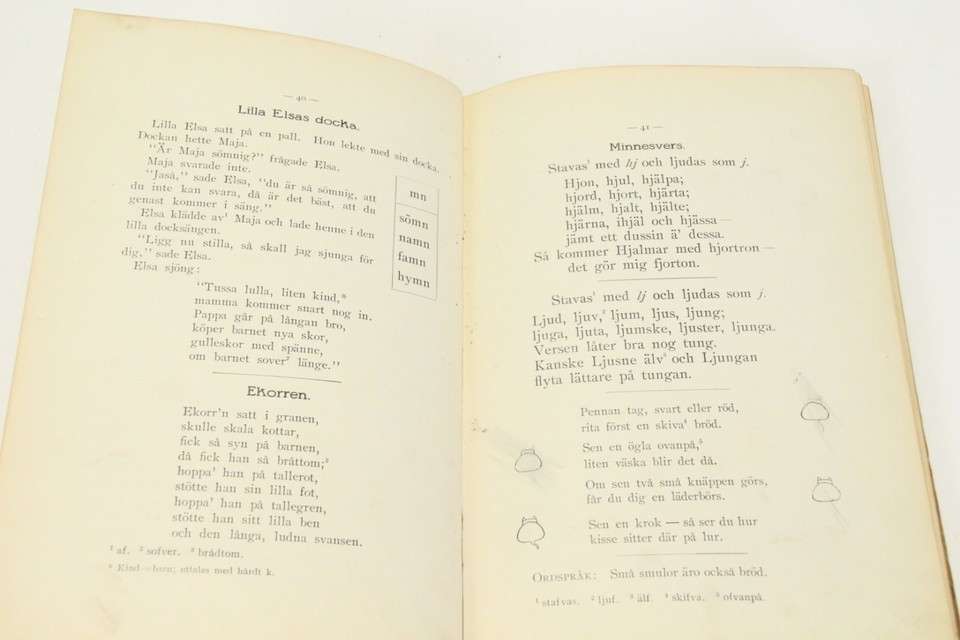 — 40 —
Lilla Elsas docka.
Lilla Elsa satt på en pall. Hon lekte med sin docka.
Dockan hette Maja.
"Är Maja sömnig?" frågade Elsa.
Maja svarade inte.
"Jaså," sade Elsa, "du är så sömnig, att
du inte kan svara, då är det bäst, att du
genast kommer i säng."
Elsa klädde av¹ Maja och lade henne i den
lilla docksängen.
"Ligg nu stilla, så skall jag sjunga för
dig," sade Elsa.
Elsa sjöng:
mn
sömn
namn
famn
hymn
"Tussa lulla, liten kind,*
mamma kommer snart nog in.
Pappa går på långan bro,
köper barnet nya skor,
gulleskor med spänne,
om barnet sover² länge."
Ekorren.
Ekorr'n satt i granen,
skulle skala kottar,
fick så syn på barnen,
då fick han så bråttom;³
hoppa' han på tallerot,
stötte han sin lilla fot,
hoppa' han på tallegren,
stötte han sitt lilla ben
och den långa, ludna svansen.
¹ af. ² sofver. ³ brådtom.
* Kind = barn; uttalas med hårdt k.
— 41 —
Minnesvers.
Stavas¹ med hj och ljudas som j.
Hjon, hjul, hjälpa;
hjord, hjort, hjärta;
hjälm, hjalt, hjälte;
hjärna, ihjäl och hjässa —
jämt ett dussin ä' dessa.
Så kommer Hjalmar med hjortron —
det gör mig fjorton.
Stavas¹ med lj och ljudas som j.
Ljud, ljuv,² ljum, ljus, ljung;
ljuga, ljuta, ljumske, ljuster, ljunga.
Versen låter bra nog tung.
Kanske Ljusne älv³ och Ljungan
flyta lättare på tungan.
Pennan tag, svart eller röd,
rita först en skiva⁴ bröd.
Sen en ögla ovanpå,⁵
liten väska blir det då.
Om sen två små knäppen görs,
får du dig en läderbörs.
Sen en krok — så ser du hur
kisse sitter där på lur.
Ordspråk: Små smulor äro också bröd.
¹ stafvas. ² ljuf. ³ älf. ⁴ skifva. ⁵ ofvanpå.